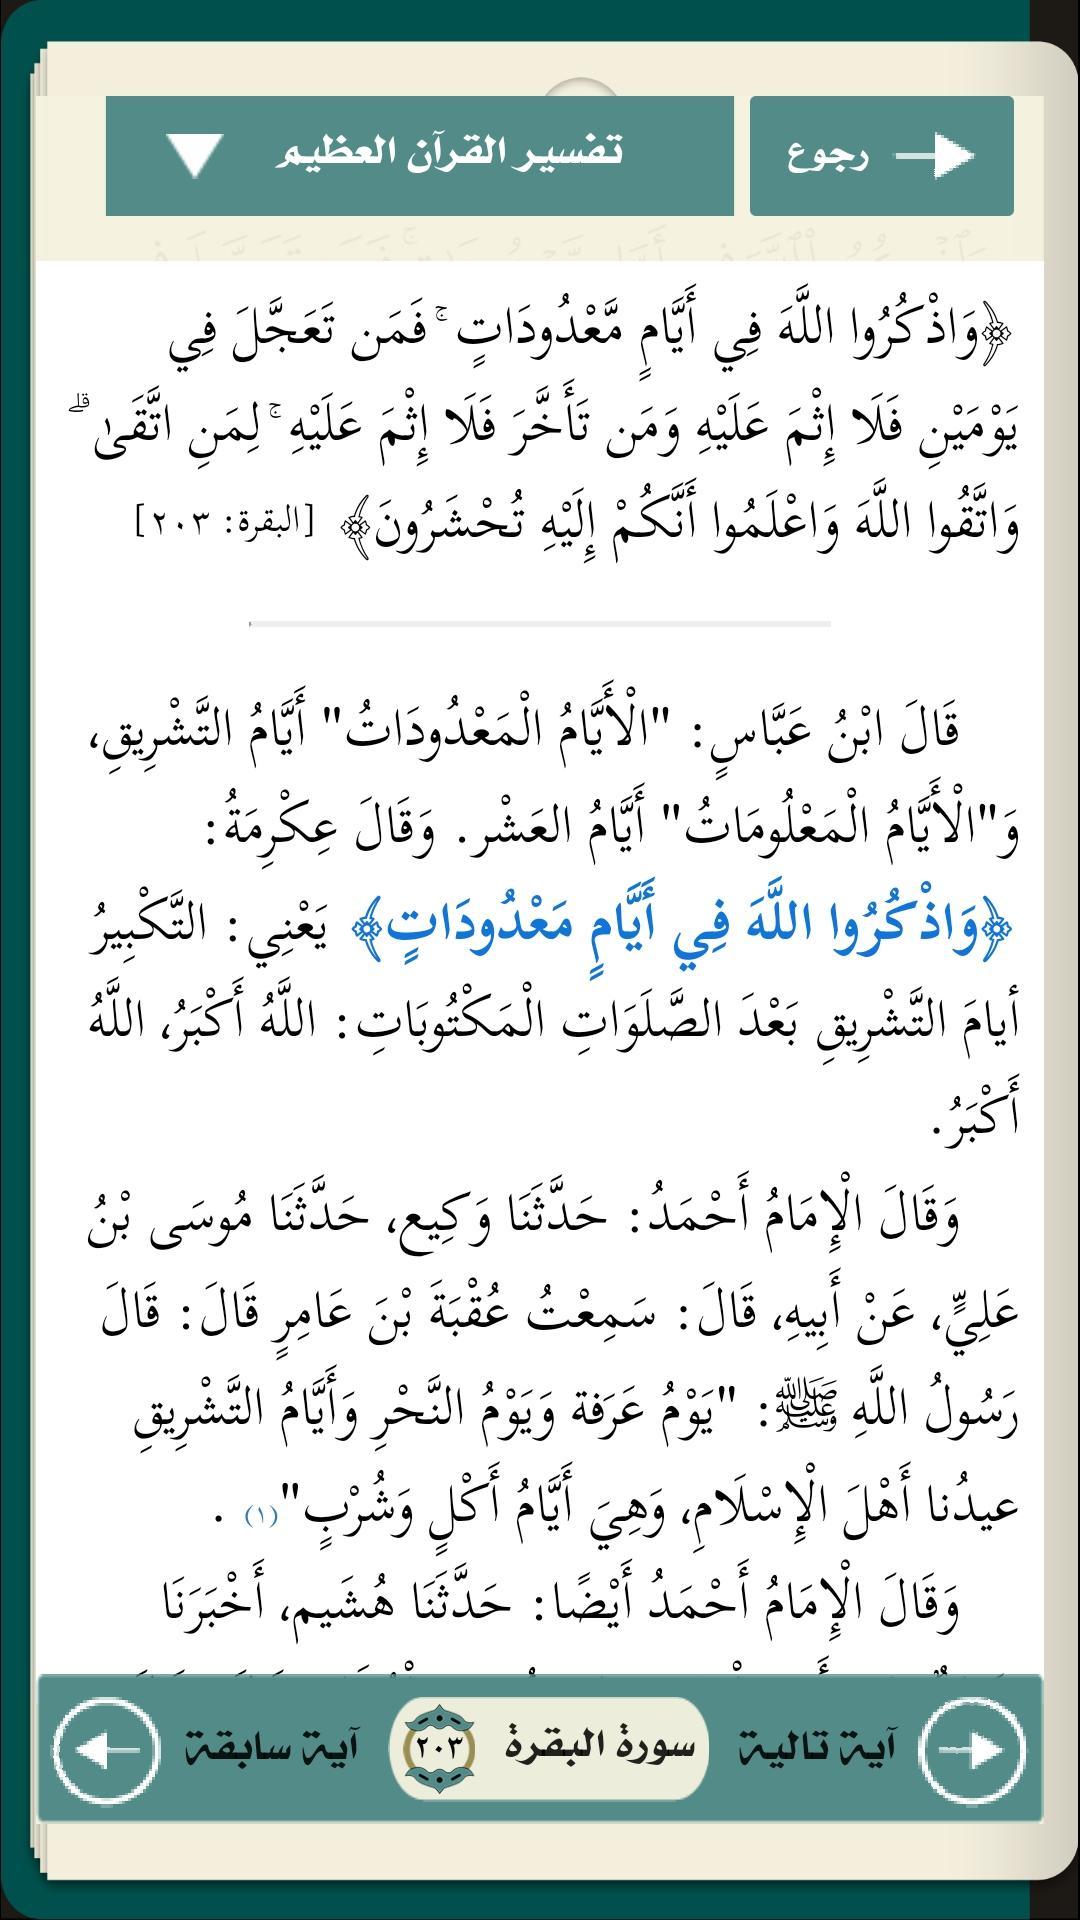 رجوع
تفسير القرآن العظيم
﴿وَاذْكُرُوا اللَّهَ فِي أَيَّامٍ مَّعْدُودَاتٍ ۚ فَمَن تَعَجَّلَ فِي
يَوْمَيْنِ فَلَا إِثْمَ عَلَيْهِ وَمَن تَأَخَّرَ فَلَا إِثْمَ عَلَيْهِ ۚ لِمَنِ اتَّقَىٰ ۗ
وَاتَّقُوا اللَّهَ وَاعْلَمُوا أَنَّكُمْ إِلَيْهِ تُحْشَرُونَ﴾ [البقرة: ٢٠٣]
قَالَ ابْنُ عَبَّاسٍ: "الْأَيَّامُ الْمَعْدُودَاتُ" أَيَّامُ التَّشْرِيقِ،
وَ"الْأَيَّامُ الْمَعْلُومَاتُ" أَيَّامُ العَشْر. وَقَالَ عِكْرِمَةُ:
﴿وَاذْكُرُوا اللَّهَ فِي أَيَّامٍ مَعْدُودَاتٍ﴾ يَعْنِي: التَّكْبِيرُ
أيامَ التَّشْرِيقِ بَعْدَ الصَّلَوَاتِ الْمَكْتُوبَاتِ: اللَّهُ أَكْبَرُ، اللَّهُ
أَكْبَرُ.
وَقَالَ الْإِمَامُ أَحْمَدُ: حَدَّثَنَا وَكِيع، حَدَّثَنَا مُوسَى بْنُ
عَلِيٍّ، عَنْ أَبِيهِ، قَالَ: سَمِعْتُ عُقْبَةَ بْنَ عَامِرٍ قَالَ: قَالَ
رَسُولُ اللَّهِ ﷺ: "يَوْمُ عَرَفة وَيَوْمُ النَّحْرِ وَأَيَّامُ التَّشْرِيقِ
عيدُنا أَهْلَ الْإِسْلَامِ، وَهِيَ أَيَّامُ أَكْلٍ وَشُرْبٍ"(١) .
وَقَالَ الْإِمَامُ أَحْمَدُ أَيْضًا: حَدَّثَنَا هُشَيم، أَخْبَرَنَا
آية تالية
سورة البقرة ٢٠٣
آية سابقة